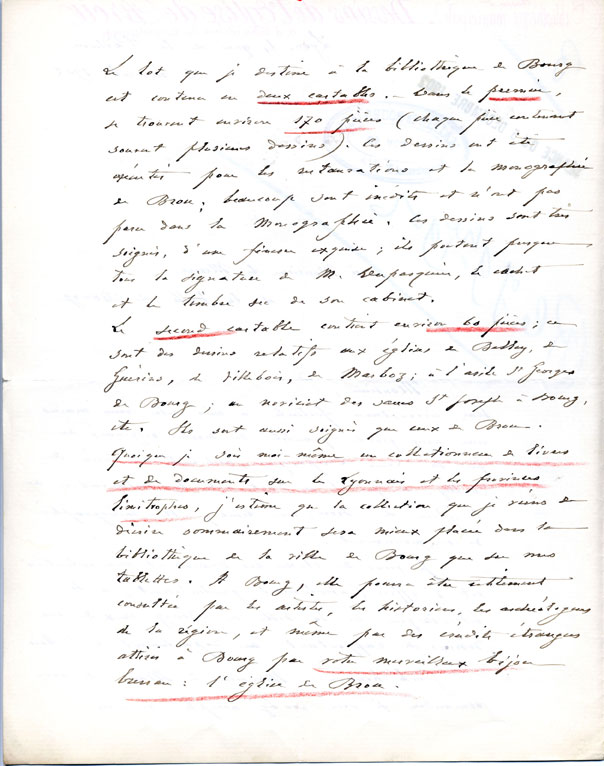 Le lot que je destine à la bibliothèque de Bourg
est contenu en deux cartables. – Dans le premier,
se trouvent environ 170 pièces (chaque pièce contenant
souvent plusieurs dessins). Ces dessins ont été
exécutés pour les restaurations et la monographie
de Brou; beaucoup sont inédits et n'ont pas
paru dans la Monographie. Ces dessins sont très
soignés, d'une finesse exquise; ils portent presque
tous la signature de M. Dupasquier, le cachet
et le timbre sec de son cabinet.
Le second cartable contient environ 60 pièces; ce
sont des dessins relatifs aux églises de Belley, de
Guérins, de Villebois, de Marboz; à l'asile St Georges
de Bourg; au noviciat des sœurs St Joseph à Bourg,
etc. Ils sont aussi soignés que ceux de Brou.
Quoique je sois moi-même un collectionneur de livres
et de documents sur le Lyonnais et les provinces
limitrophes, j'estime que la collection que je viens de
décrire sommairement sera mieux placée dans la
bibliothèque de la ville de Bourg que sur mes
tablettes. A Bourg, elle pourra être utilement
consultée par les artistes, les historiens, les archéologues
de la région, et même par des érudits étrangers
attirés à Bourg par votre merveilleux bijou
bressan: l'église de Brou.